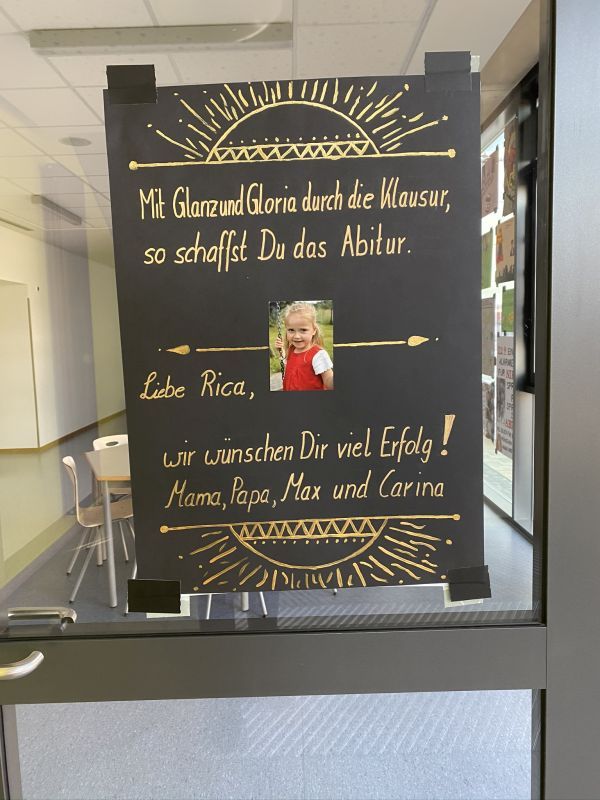 Mit Glanz und Gloria durch die Klausur,
so schaffst Du das Abitur.
Liebe Rica,
wir wünschen Dir viel Erfolg!
Mama, Papa, Max und Carina